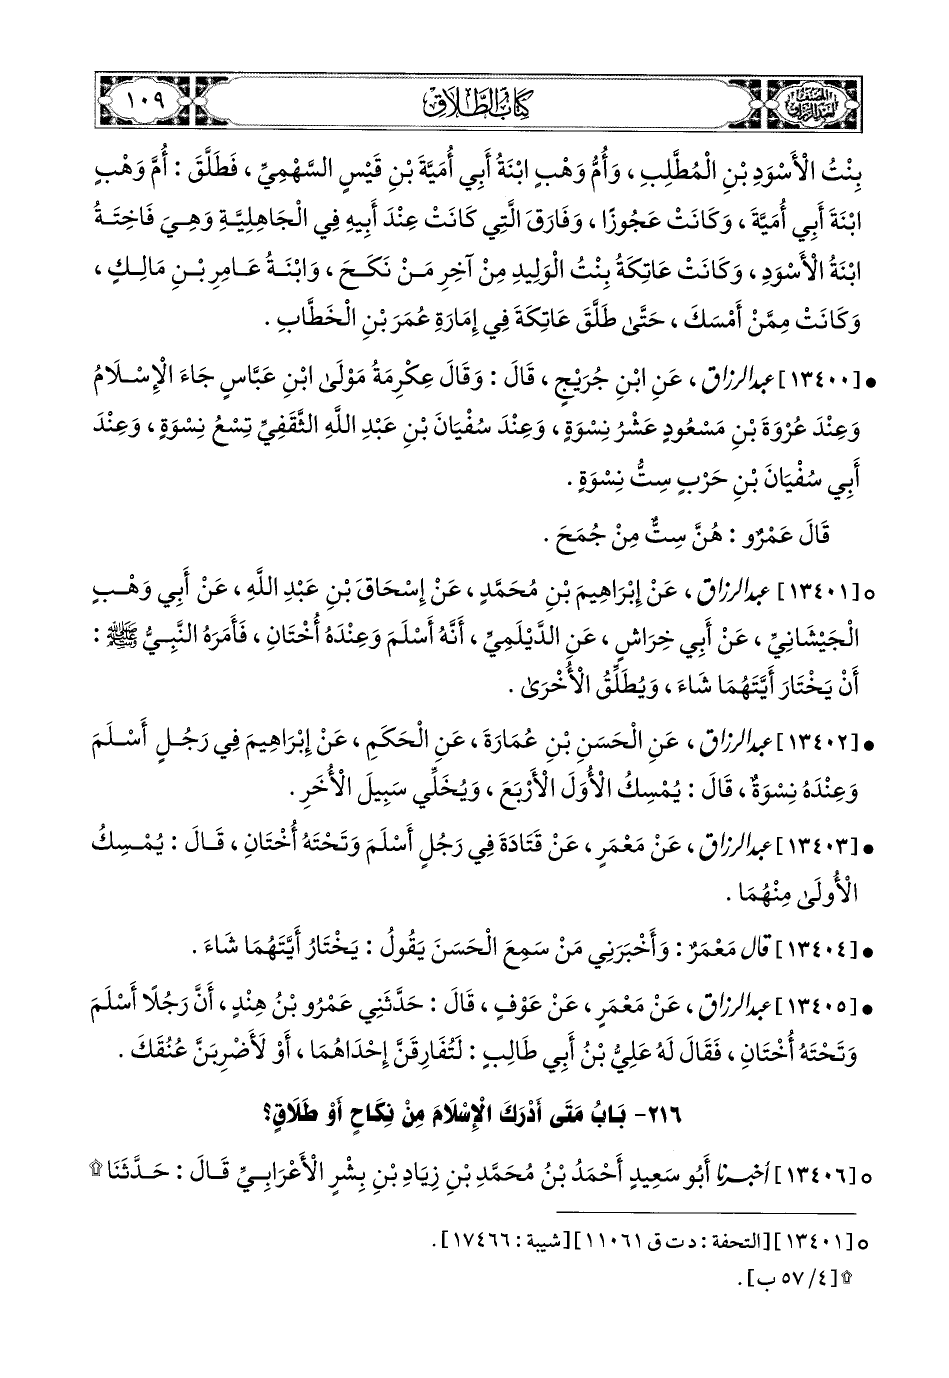 المصنف للإمام عبد الرزاق
كتاب الطلاق
١٠٩
بِنْتُ الْأَسْوَدِ بْنِ الْمُطَّلِبِ ، وَأُمُّ وَهْبٍ ابْنَةُ أَبِي أُمَيَّةَ بْنِ قَيْسٍ السَّهْمِيِّ ، فَطَلَّقَ : أُمَّ وَهْبٍ
ابْنَةَ أَبِي أُمَيَّةَ ، وَكَانَتْ عَجُوزًا ، وَفَارَقَ الَّتِي كَانَتْ عِنْدَ أَبِيهِ فِي الْجَاهِلِيَّةِ وَهِيَ فَاخِتَةُ
ابْنَةُ الْأَسْوَدِ ، وَكَانَتْ عَاتِكَةُ بِنْتُ الْوَلِيدِ مِنْ آخِرِ مَنْ نَكَحَ ، وَابْنَةُ عَامِرِ بْنِ مَالِكٍ ،
وَكَانَتْ مِمَّنْ أَمْسَكَ ، حَتَّى طَلَّقَ عَاتِكَةَ فِي إِمَارَةِ عُمَرَ بْنِ الْخَطَّابِ .
• [١٣٤٠٠] عبد الرزاق ، عَنِ ابْنِ جُرَيْجٍ ، قَالَ : وَقَالَ عِكْرِمَةُ مَوْلَى ابْنِ عَبَّاسٍ جَاءَ الْإِسْلَامُ
وَعِنْدَ عُرْوَةَ بْنِ مَسْعُودٍ عَشْرُ نِسْوَةٍ ، وَعِنْدَ سُفْيَانَ بْنِ عَبْدِ اللَّهِ الثَّقَفِيِّ تِسْعُ نِسْوَةٍ ، وَعِنْدَ
أَبِي سُفْيَانَ بْنِ حَرْبٍ سِتُّ نِسْوَةٍ .
قَالَ عَمْرٌو : هُنَّ سِتٌّ مِنْ جُمَحَ .
○ [١٣٤٠١] عبد الرزاق ، عَنْ إِبْرَاهِيمَ بْنِ مُحَمَّدٍ ، عَنْ إِسْحَاقَ بْنِ عَبْدِ اللَّهِ ، عَنْ أَبِي وَهْبٍ
الْجَيْشَانِيِّ ، عَنْ أَبِي خِرَاشٍ ، عَنِ الدَّيْلَمِيِّ ، أَنَّهُ أَسْلَمَ وَعِنْدَهُ أُخْتَانِ ، فَأَمَرَهُ النَّبِيُّ ﷺ :
أَنْ يَخْتَارَ أَيَّتَهُمَا شَاءَ ، وَيُطَلِّقُ الْأُخْرَى .
• [١٣٤٠٢] عبد الرزاق ، عَنِ الْحَسَنِ بْنِ عُمَارَةَ ، عَنِ الْحَكَمِ ، عَنْ إِبْرَاهِيمَ فِي رَجُلٍ أَسْلَمَ
وَعِنْدَهُ نِسْوَةٌ ، قَالَ : يُمْسِكُ الْأُوَلَ الْأَرْبَعَ ، وَيُخَلِّي سَبِيلَ الْأُخَرِ .
• [١٣٤٠٣] عبد الرزاق ، عَنْ مَعْمَرٍ ، عَنْ قَتَادَةَ فِي رَجُلٍ أَسْلَمَ وَتَحْتَهُ أُخْتَانِ ، قَالَ : يُمْسِكُ
الْأُولَى مِنْهُمَا .
• [١٣٤٠٤] قال مَعْمَرٌ : وَأَخْبَرَنِي مَنْ سَمِعَ الْحَسَنَ يَقُولُ : يَخْتَارُ أَيَّتَهُمَا شَاءَ .
• [١٣٤٠٥] عبد الرزاق ، عَنْ مَعْمَرٍ ، عَنْ عَوْفٍ ، قَالَ : حَدَّثَنِي عَمْرُو بْنُ هِنْدٍ ، أَنَّ رَجُلًا أَسْلَمَ
وَتَحْتَهُ أُخْتَانِ ، فَقَالَ لَهُ عَلِيُّ بْنُ أَبِي طَالِبٍ : لَتُفَارِقَنَّ إِحْدَاهُمَا ، أَوْ لَأَضْرِبَنَّ عُنُقَكَ .
٢١٦- بَابُ مَتَى أَدْرَكَ الْإِسْلَامَ مِنْ نِكَاحٍ أَوْ طَلَاقٍ؟
○ [١٣٤٠٦] أخبرنا أَبُو سَعِيدٍ أَحْمَدُ بْنُ مُحَمَّدِ بْنِ زِيَادِ بْنِ بِشْرٍ الْأَعْرَابِيِّ قَالَ : حَدَّثَنَا ۩
○ [١٣٤٠١] [التحفة : د ت ق ١١٠٦١] [شيبة : ١٧٤٦٦] .
۩ [٤/ ٥٧ ب] .